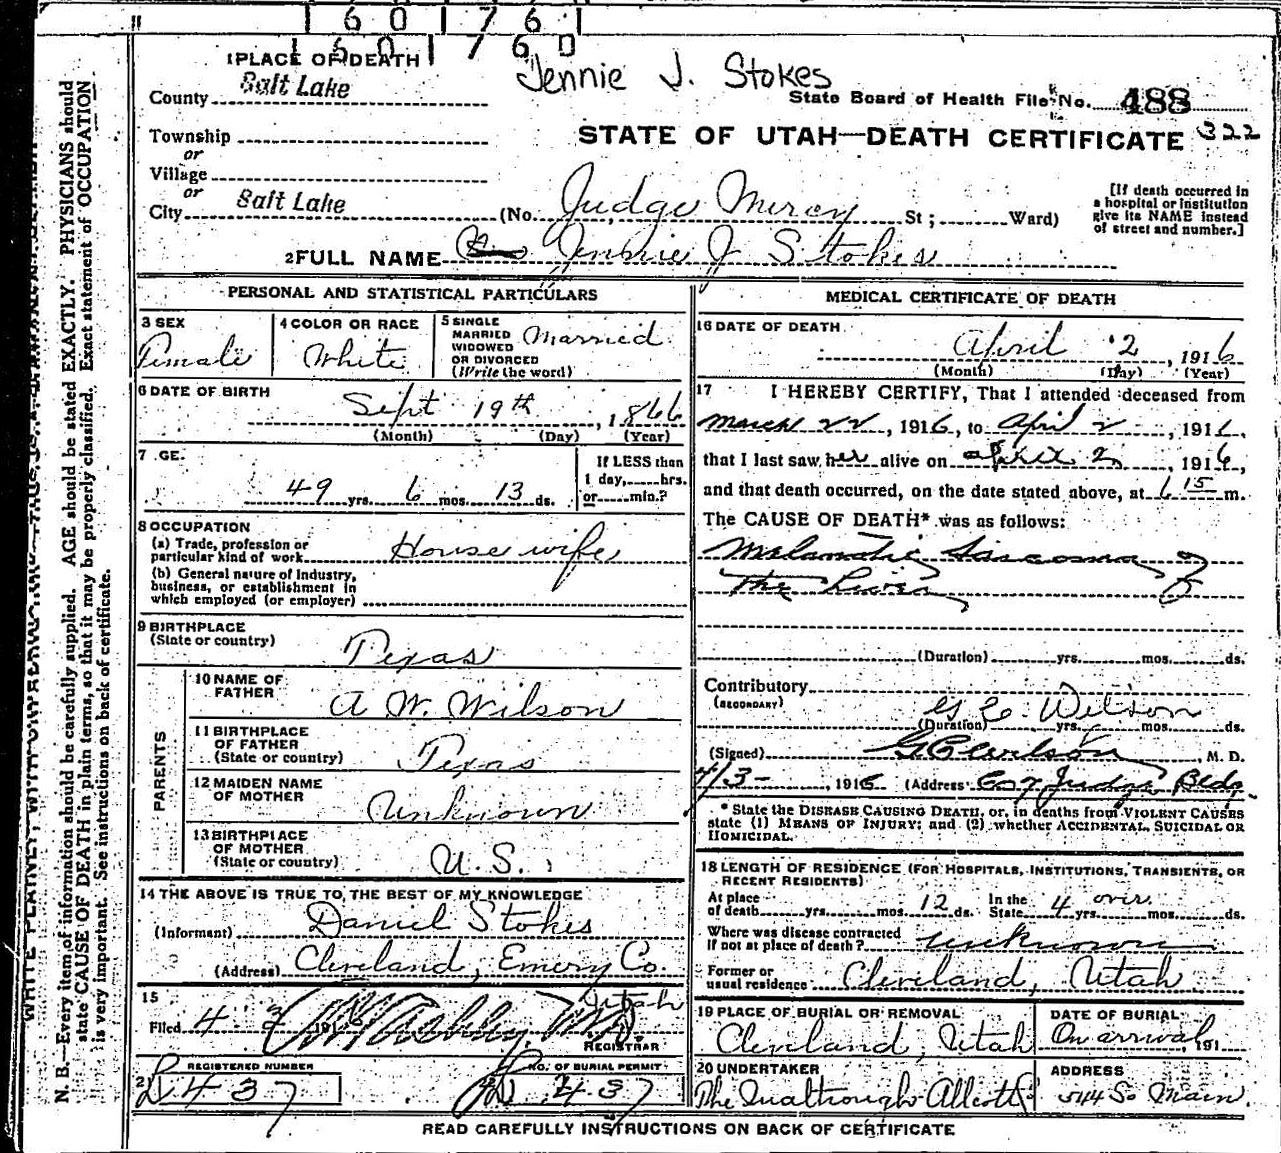 11 1 6 0 1 7 6 1
1 6 0 1 7 6 0
1 PLACE OF DEATH
Jennie J. Stokes
County Salt Lake
State Board of Health File No. 488
Township
STATE OF UTAH—DEATH CERTIFICATE 322
or
Village
or
City Salt Lake (No. Judge Mercy St; Ward)
[If death occurred in
a hospital or institution
give its NAME instead
of street and number.]
2 FULL NAME Jennie J Stokes
PERSONAL AND STATISTICAL PARTICULARS
3 SEX
Female
4 COLOR OR RACE
White
5 SINGLE
MARRIED
WIDOWED
OR DIVORCED
(Write the word)
Married
6 DATE OF BIRTH
Sept 19th, 1866
(Month) (Day) (Year)
7 GE.
49 yrs. 6 mos. 13 ds.
If LESS than
1 day, hrs.
or min.?
8 OCCUPATION
(a) Trade, profession or
particular kind of work House wife
(b) General nature of Industry,
business, or establishment in
which employed (or employer)
9 BIRTHPLACE
(State or country)
Texas
PARENTS
10 NAME OF
FATHER
A W. Wilson
11 BIRTHPLACE
OF FATHER
(State or country)
Texas
12 MAIDEN NAME
OF MOTHER
Unknown
13 BIRTHPLACE
OF MOTHER
(State or country)
U.S.
14 THE ABOVE IS TRUE TO THE BEST OF MY KNOWLEDGE
(Informant) Daniel Stokes
(Address) Cleveland, Emery Co.
Utah
15
Filed 4
REGISTRAR
REGISTERED NUMBER
D 437
NO. OF BURIAL PERMIT
D 437
MEDICAL CERTIFICATE OF DEATH
16 DATE OF DEATH
April 2, 1916
(Month) (Day) (Year)
17 I HEREBY CERTIFY, That I attended deceased from
March 22, 1916, to April 2, 1916,
that I last saw her alive on April 2, 1916,
and that death occurred, on the date stated above, at 6 15 m.
The CAUSE OF DEATH* was as follows:
Melanotic Sarcoma of
The Liver
(Duration) yrs. mos. ds.
Contributory
(SECONDARY)
G C. Wilson
(Duration) yrs. mos. ds.
(Signed) G C Wilson, M. D.
4/3-, 1916 (Address Judge Bldg.
* State the DISEASE CAUSING DEATH, or, in deaths from VIOLENT CAUSES
state (1) MEANS OF INJURY; and (2) whether ACCIDENTAL, SUICIDAL OR
HOMICIDAL.
18 LENGTH OF RESIDENCE (FOR HOSPITALS, INSTITUTIONS, TRANSIENTS, OR
RECENT RESIDENTS)
At place
of death yrs. mos. 12 ds.
In the
State 4 yrs. over mos. ds.
Where was disease contracted
If not at place of death? unknown
Former or
usual residence Cleveland, Utah
19 PLACE OF BURIAL OR REMOVAL
Cleveland, Utah
DATE OF BURIAL
On arrival, 191
20 UNDERTAKER
ADDRESS
So Main.
READ CAREFULLY INSTRUCTIONS ON BACK OF CERTIFICATE
N. B.—Every item of information should be carefully supplied. AGE should be stated EXACTLY. PHYSICIANS should
state CAUSE OF DEATH in plain terms, so that it may be properly classified. Exact statement of OCCUPATION
is very important. See instructions on back of certificate.